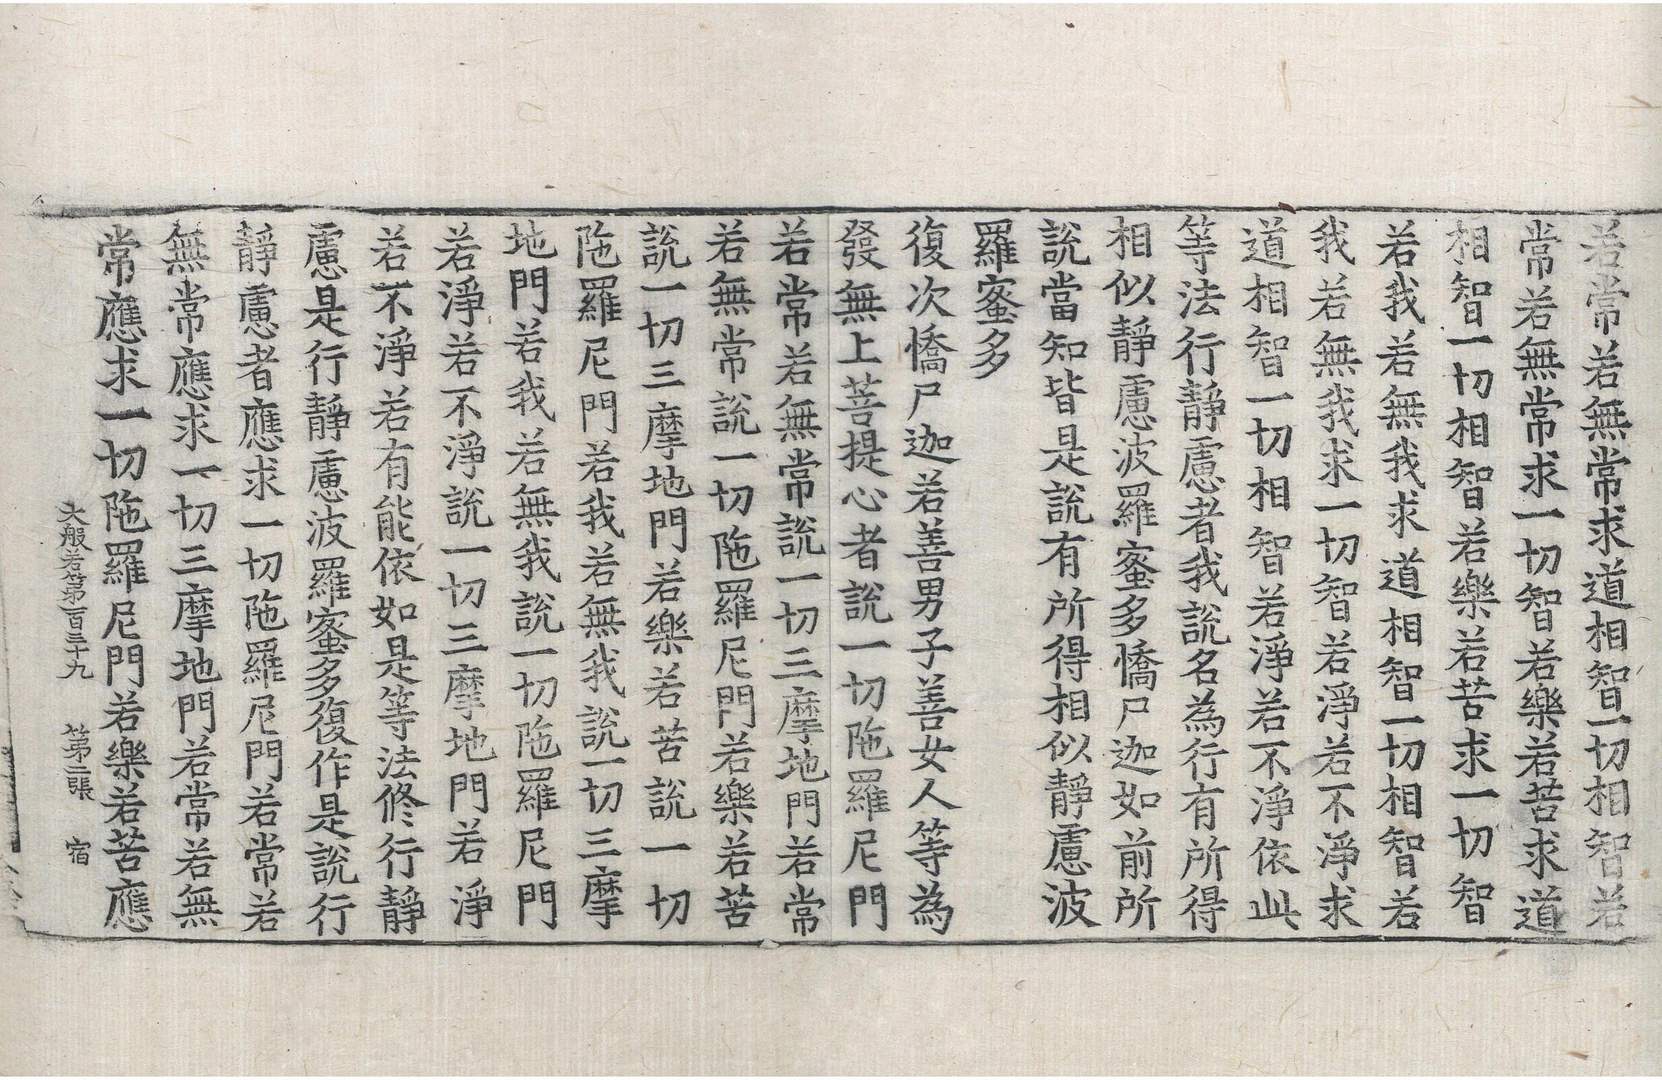 若常若無常求道相智一切相智若
常若無常求一切智若樂若苦求道
相智一切相智若樂若苦求一切智
若我若無我求道相智一切相智若
我若無我求一切智若淨若不淨求
道相智一切相智若淨若不淨依此
等法行靜慮者我說名為行有所得
相似靜慮波羅蜜多憍尸迦如前所
說當知皆是說有所得相似靜慮波
羅蜜多
復次憍尸迦若善男子善女人等為
發無上菩提心者說一切陁羅尼門
若常若無常說一切三摩地門若常
若無常說一切陁羅尼門若樂若苦
說一切三摩地門若樂若苦說一切
陁羅尼門若我若無我說一切三摩
地門若我若無我說一切陁羅尼門
若淨若不淨說一切三摩地門若淨
若不淨若有能依如是等法修行靜
慮是行靜慮波羅蜜多復作是說行
靜慮者應求一切陁羅尼門若常若
無常應求一切三摩地門若常若無
常應求一切陁羅尼門若樂若苦應
大般若第一百三十九 第二張 宿